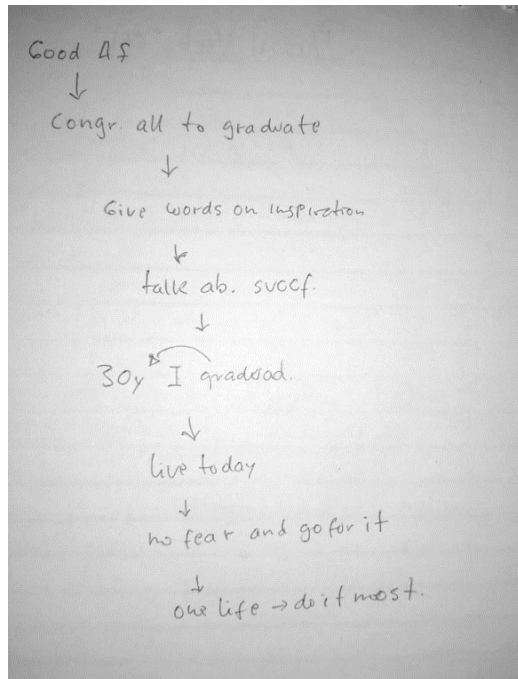 Good Af
↓
Congr. all to graduate
↓
Give words on inspiration
↓
talk ab. succf.
↓
30y I gradood.
↓
live today
↓
no fear and go for it
↓
one life → do it most.